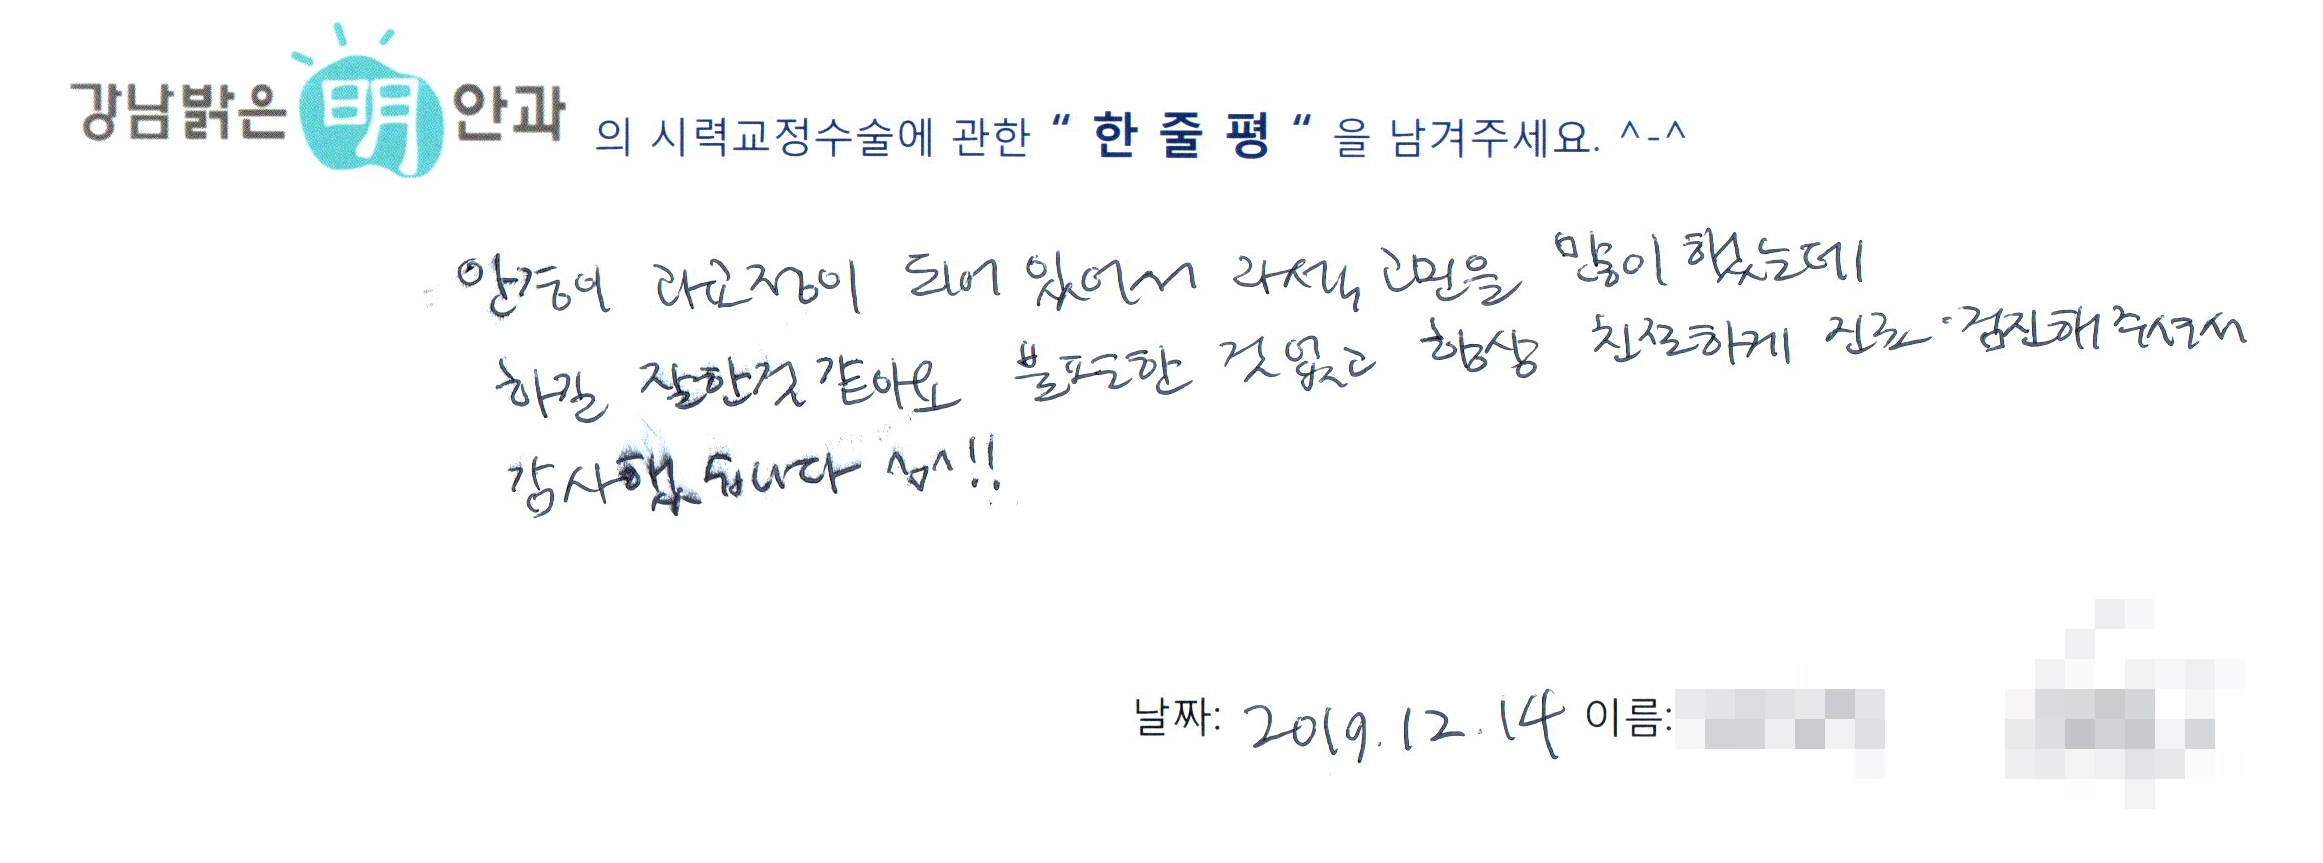 강남밝은明안과 의 시력교정수술에 관한 “ 한 줄 평 “ 을 남겨주세요. ^-^
안경이 과교정이 되어 있어서 라섹 고민을 많이 했는데
하길 잘한것 같아요 불편한 것 없고 항상 친절하게 진료·검진해주셔서
감사했습니다 ^^!!
날짜: 2019.12.14 이름: